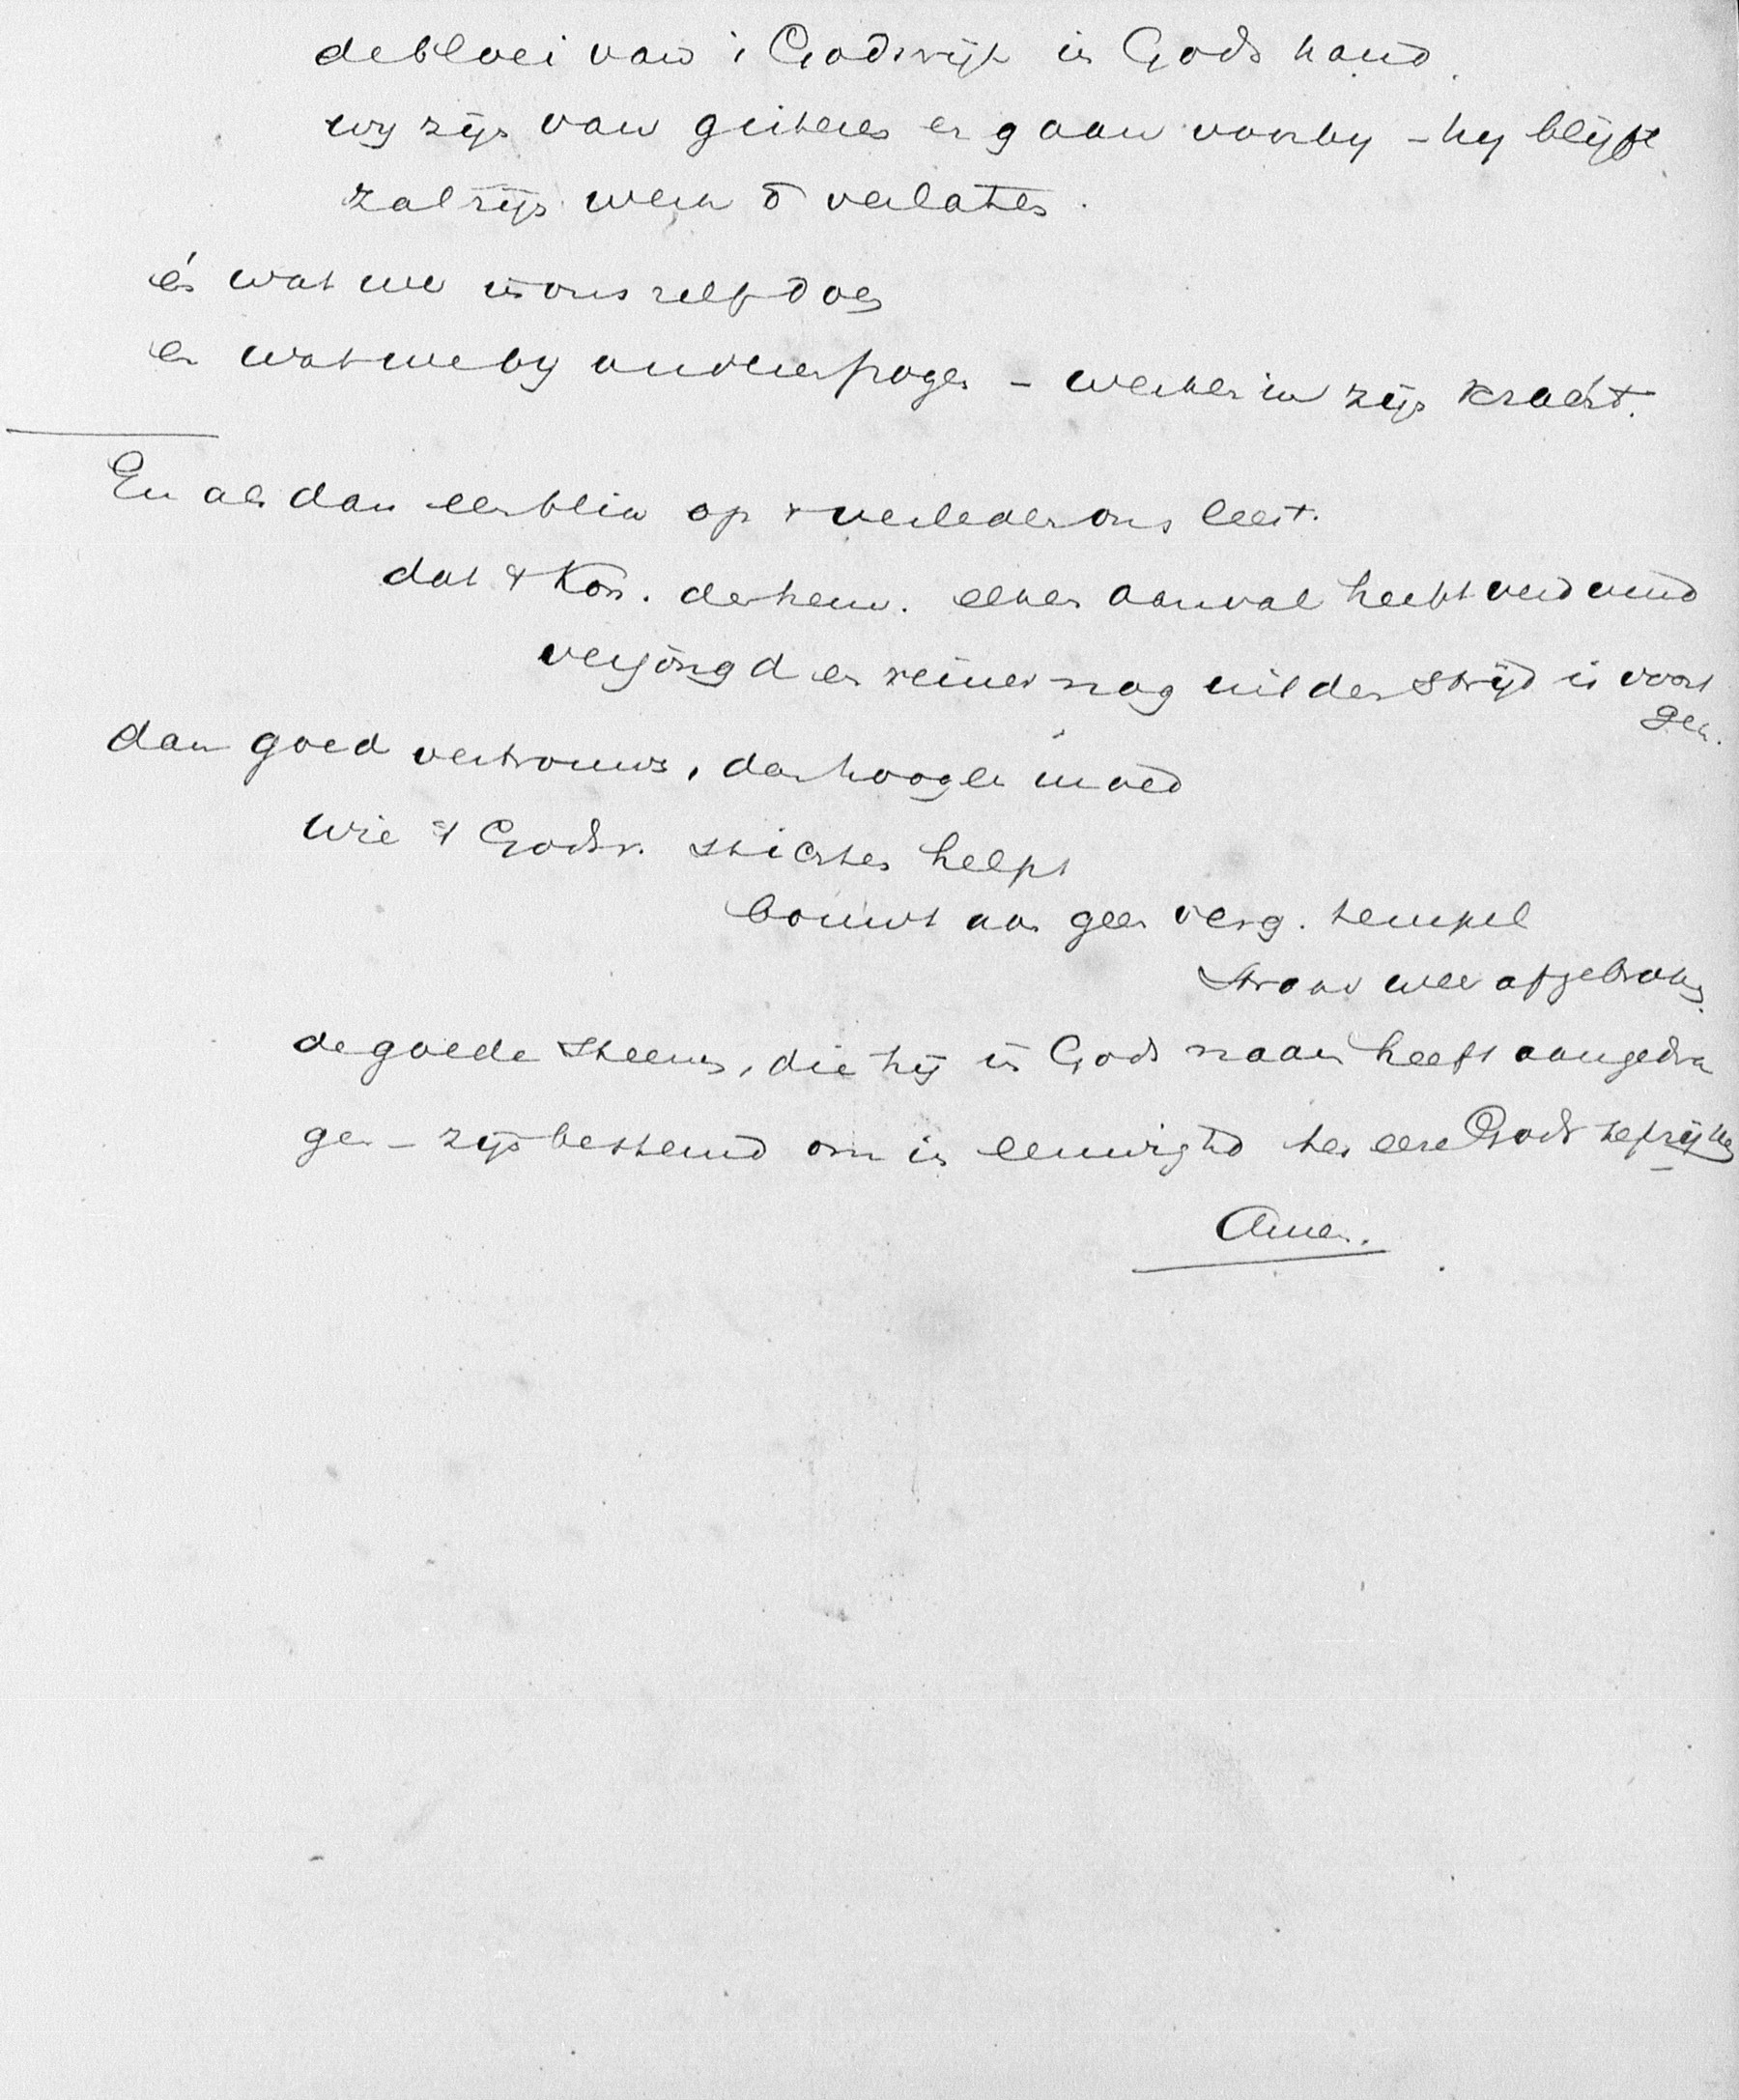 de bloei van 't Godsrijk in Gods hand.
wy zijn van gisteren en gaan voorby – hy blijft
zal zijn werk ō verlaten.
én wat we in ons zelf doen
en wat we by anderen pogen – werken in zijn kracht.
En als dan een blik op 't verleden ons leert.
dat 't Kon. der hem. elken aanval heeft verduurd
verjongd en reiner nog uit den strijd is voort
gek.
dan goed vertrouwen, dan hooger moed
Wie 't Godsr. stichten helpt
bouwt aan geen verg. tempel
straks weer afgebroken.
de goede steenen, die hij in Gods naam heeft aangedra
gen – zijn bestemd om in eeuwighd ter eere Gods te prijken
Amen.